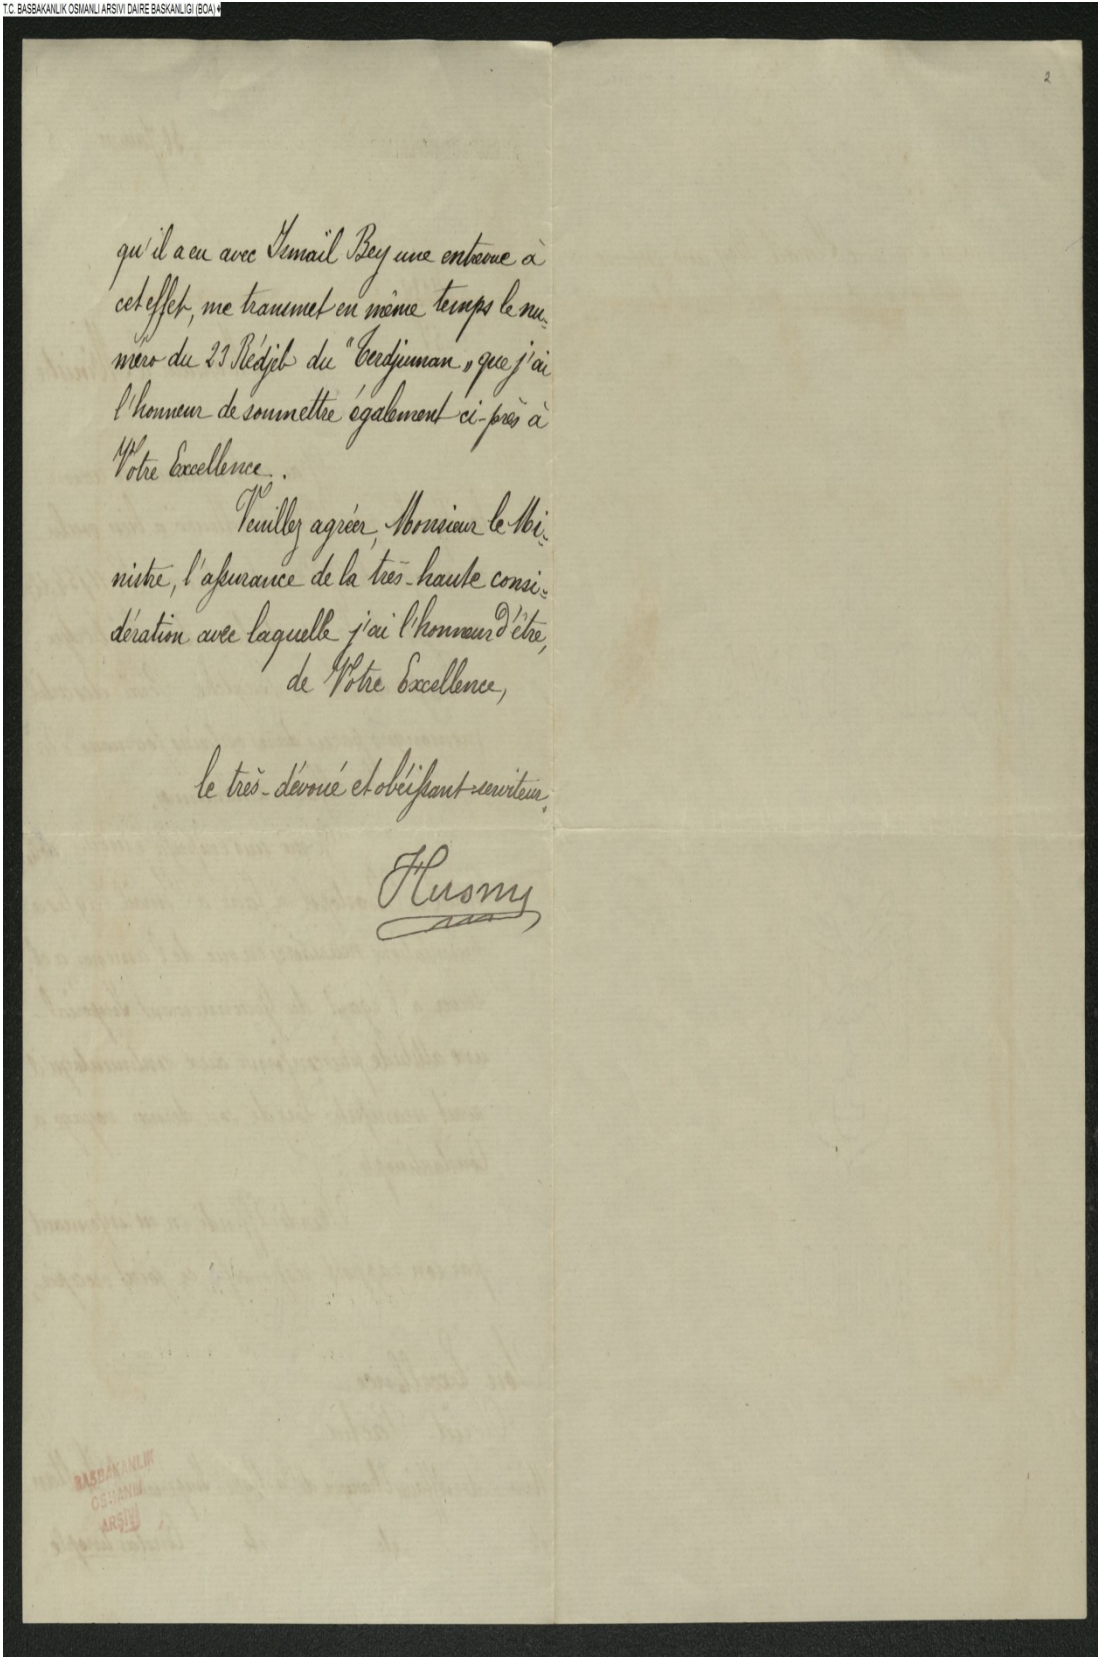 T.C. BASBAKANLIK OSMANLI ARSIVI DAIRE BASKANLIGI (BOA)
2
qu'il a eu avec Ismaïl Bey une entrevue à
cet effet, me transmet en même temps le nu-
méro du 23 Rédjeb du "Terdjuman" que j'ai
l'honneur de soumettre également ci-près à
Votre Excellence.
Veuillez agréer, Monsieur le Mi-
nistre, l'assurance de la très-haute consi-
dération avec laquelle j'ai l'honneur d'être,
de Votre Excellence,
le très-dévoué et obéissant serviteur.
Husny
BAŞBAKANLIK
OSMANLI
ARŞİVİ